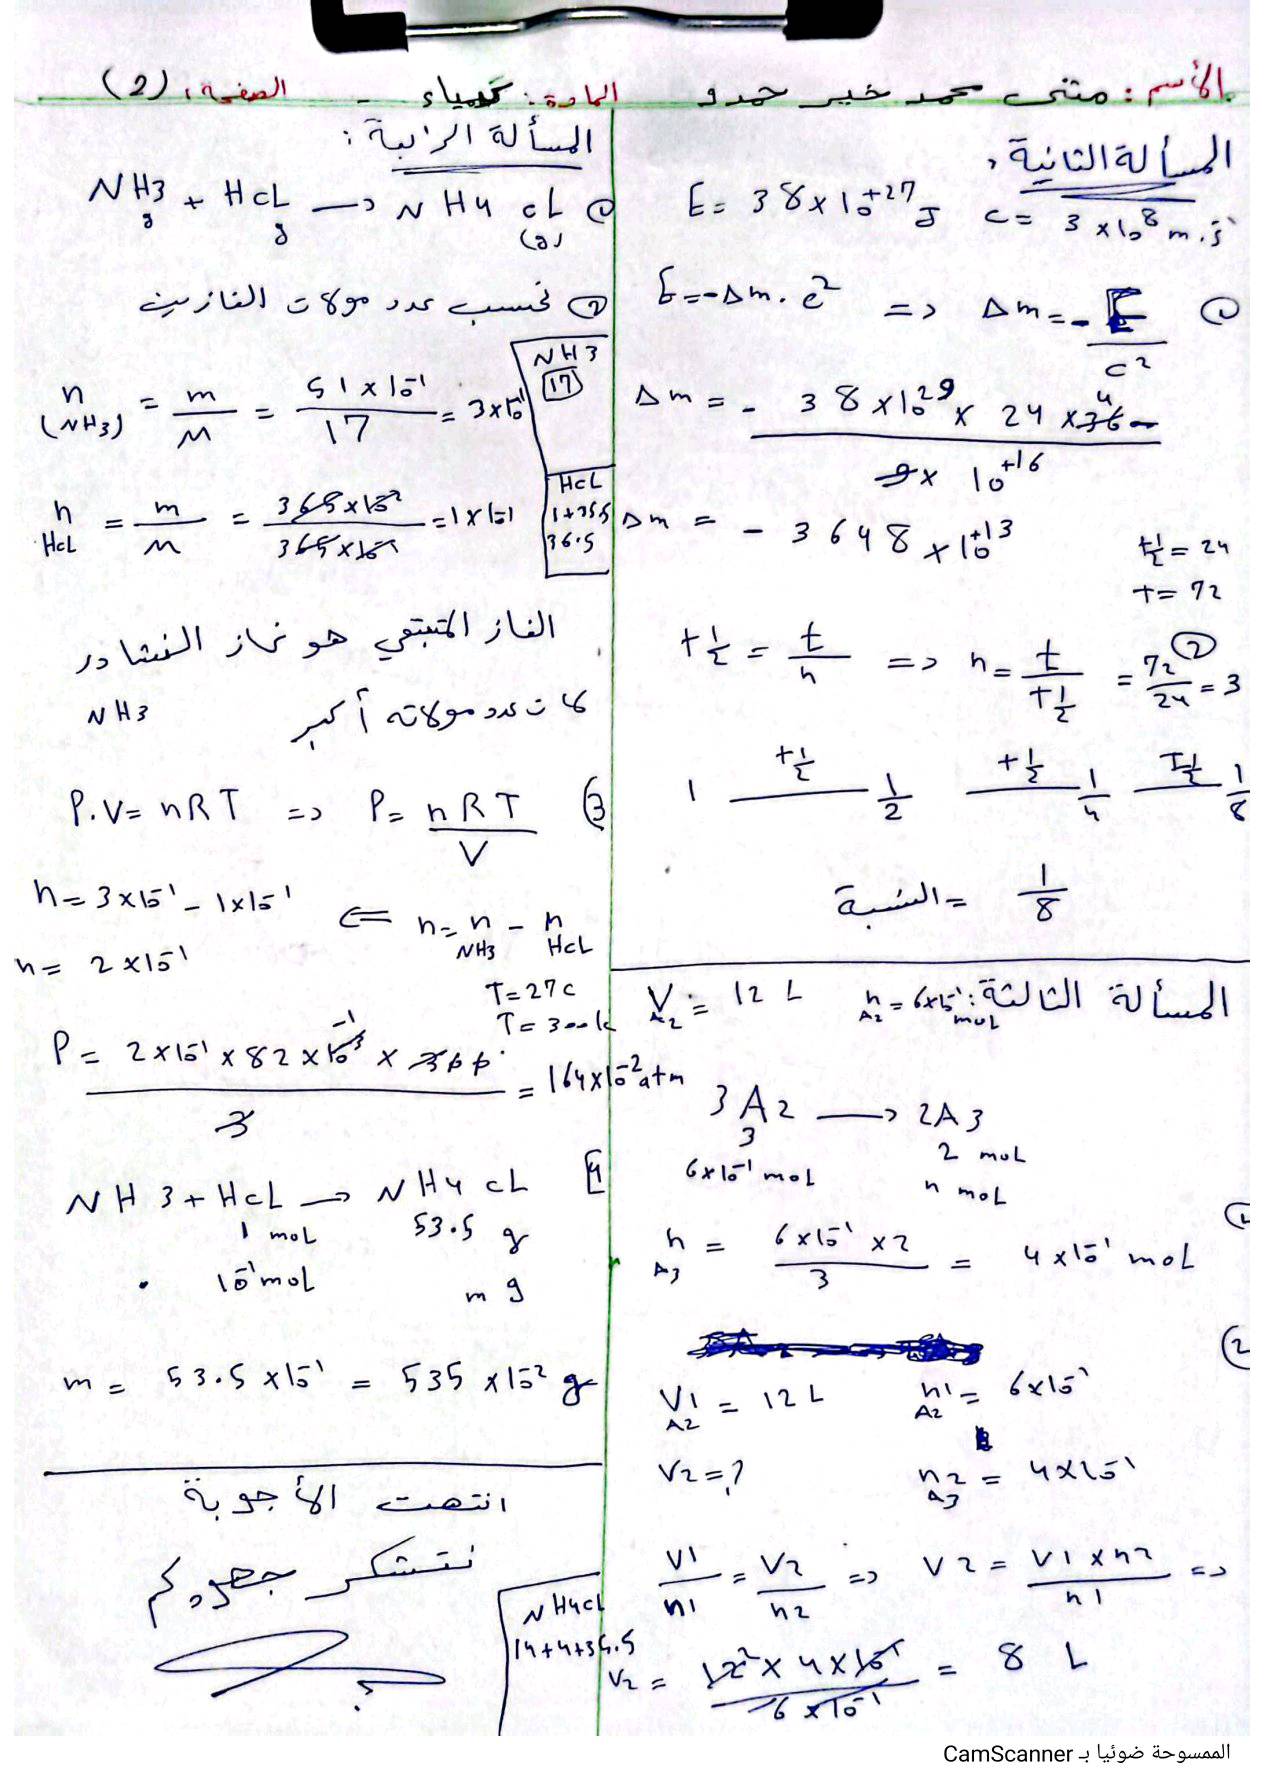 الأسم: مثنى محمد خير حمدو المادة: كيمياء - الصفحة: (2)
المسألة الثانية:
E = 38×10^+27 J C = 3×10^8 m.s^-1
① E = -Δm.c² => Δm = - E / c²
Δm = - 38×10^29 × 24 × 36 / 9×10^+16
4
Δm = - 3648×10^+13
t½ = 24
t = 72
② t½ = t / n => n = t / t½ = 72 / 24 = 3
1 —t½— 1/2 —t½— 1/4 —t½— 1/8
النسبة = 1/8
المسألة الثالثة: n A2 = 6×10^-1 moL V A2 = 12 L
3A2 —> 2A3
3 2 moL
6×10^-1 moL n moL
① n A3 = 6×10^-1 ×2 / 3 = 4×10^-1 moL
②
V1 A2 = 12 L n1 A2 = 6×10^-1
V2 = ? n2 A3 = 4×10^-1
V1 / n1 = V2 / n2 => V2 = V1×n2 / n1 =>
V2 = 12 × 4×10^-1 / 6×10^-1 = 8 L
2
المسألة الرابعة:
① NH3 g + HCL g —> NH4 CL (g)
② نحسب عدد مولات الغازين
NH3
17
n (NH3) = m / M = 51×10^-1 / 17 = 3×10^-1
HCL
1+35.5
36.5
n HCL = m / M = 365×10^-2 / 365×10^-1 = 1×10^-1
الغاز المتبقي هو غاز النشادر
NH3 كانت عدد مولاته أكبر
③ P.V = nRT => P = nRT / V
n = n NH3 - n HCL <= n = 3×10^-1 - 1×10^-1
n = 2×10^-1
T = 27 c
T = 300 k
P = 2×10^-1 × 82×10^-3 × 300 / 3 = 164×10^-2 atm
-1
4 NH3 + HCL —> NH4 CL
1 moL 53.5 g
10^-1 moL m g
m = 53.5×10^-1 = 535×10^-2 g
انتهت الأجوبة
نتشكر جهودكم
NH4CL
14+4+35.5
الممسوحة ضوئيا بـ CamScanner